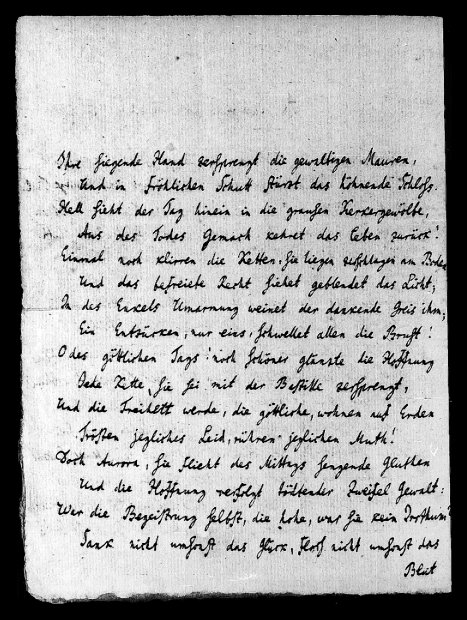 Ihre siegende Hand zersprengt die gewaltigen Mauren,
Und in fröhlichen Schutt stürzt das höhnende Schloß.
Hell sieht der Tag hinein in die grausen Kerkergewölbe,
Aus des Todes Gemach kehret das Leben zurück!
Einmal noch klirren die Ketten, sie liegen zerschlagen am Boden
Und das befreiete Recht siehet geblendet das Licht;
In des Enkels Umarmung weinet der dankende Greis ihm;
Ein Entzücken, nur eins, schwellet allen die Brust!
O des göttlichen Tags! noch schöner glänzte die Hoffnung
Jede Kette, sie sei mit der Bastille zersprengt,
Und die Freiheit werde, die göttliche, wohnen auf Erden
Trösten jegliches Leid, rühren jeglichen Muth!
Doch Aurora, sie flieht des Mittags sengende Gluthen
Und die Hoffnung verfolgt tödtender Zweifel Gewalt:
War die Begeistrung selbst, die hohe, war sie kein Irrthum?
Sank nicht umsonst das Glück, floß nicht umsonst das
Blut